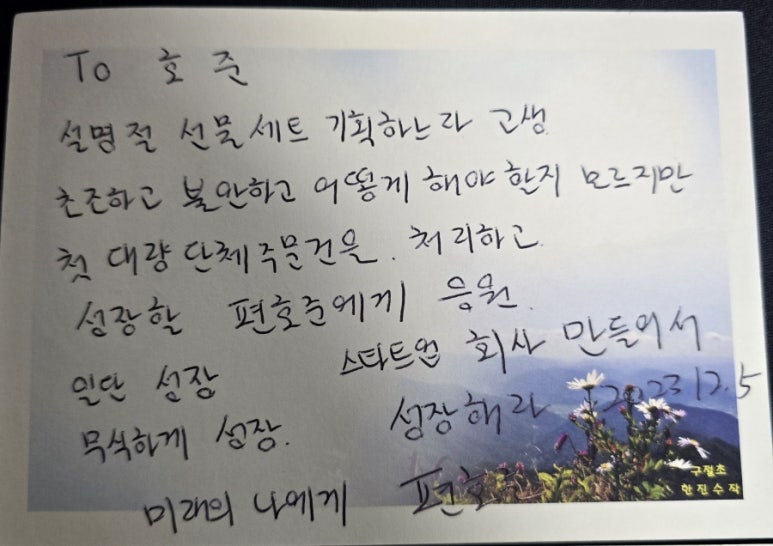 To 호준
설명절 선물세트 기획하느라 고생
초조하고 불안하고 어떻게 해야 한지 모르지만
첫 대량 단체주문건을. 처리하고.
성장할 편호준에게 응원.
일단 성장 스타트업 회사 만들어서
무식하게 성장. 성장해라 2023 12.5
미래의 나에게 편호준
구절초
한진수작